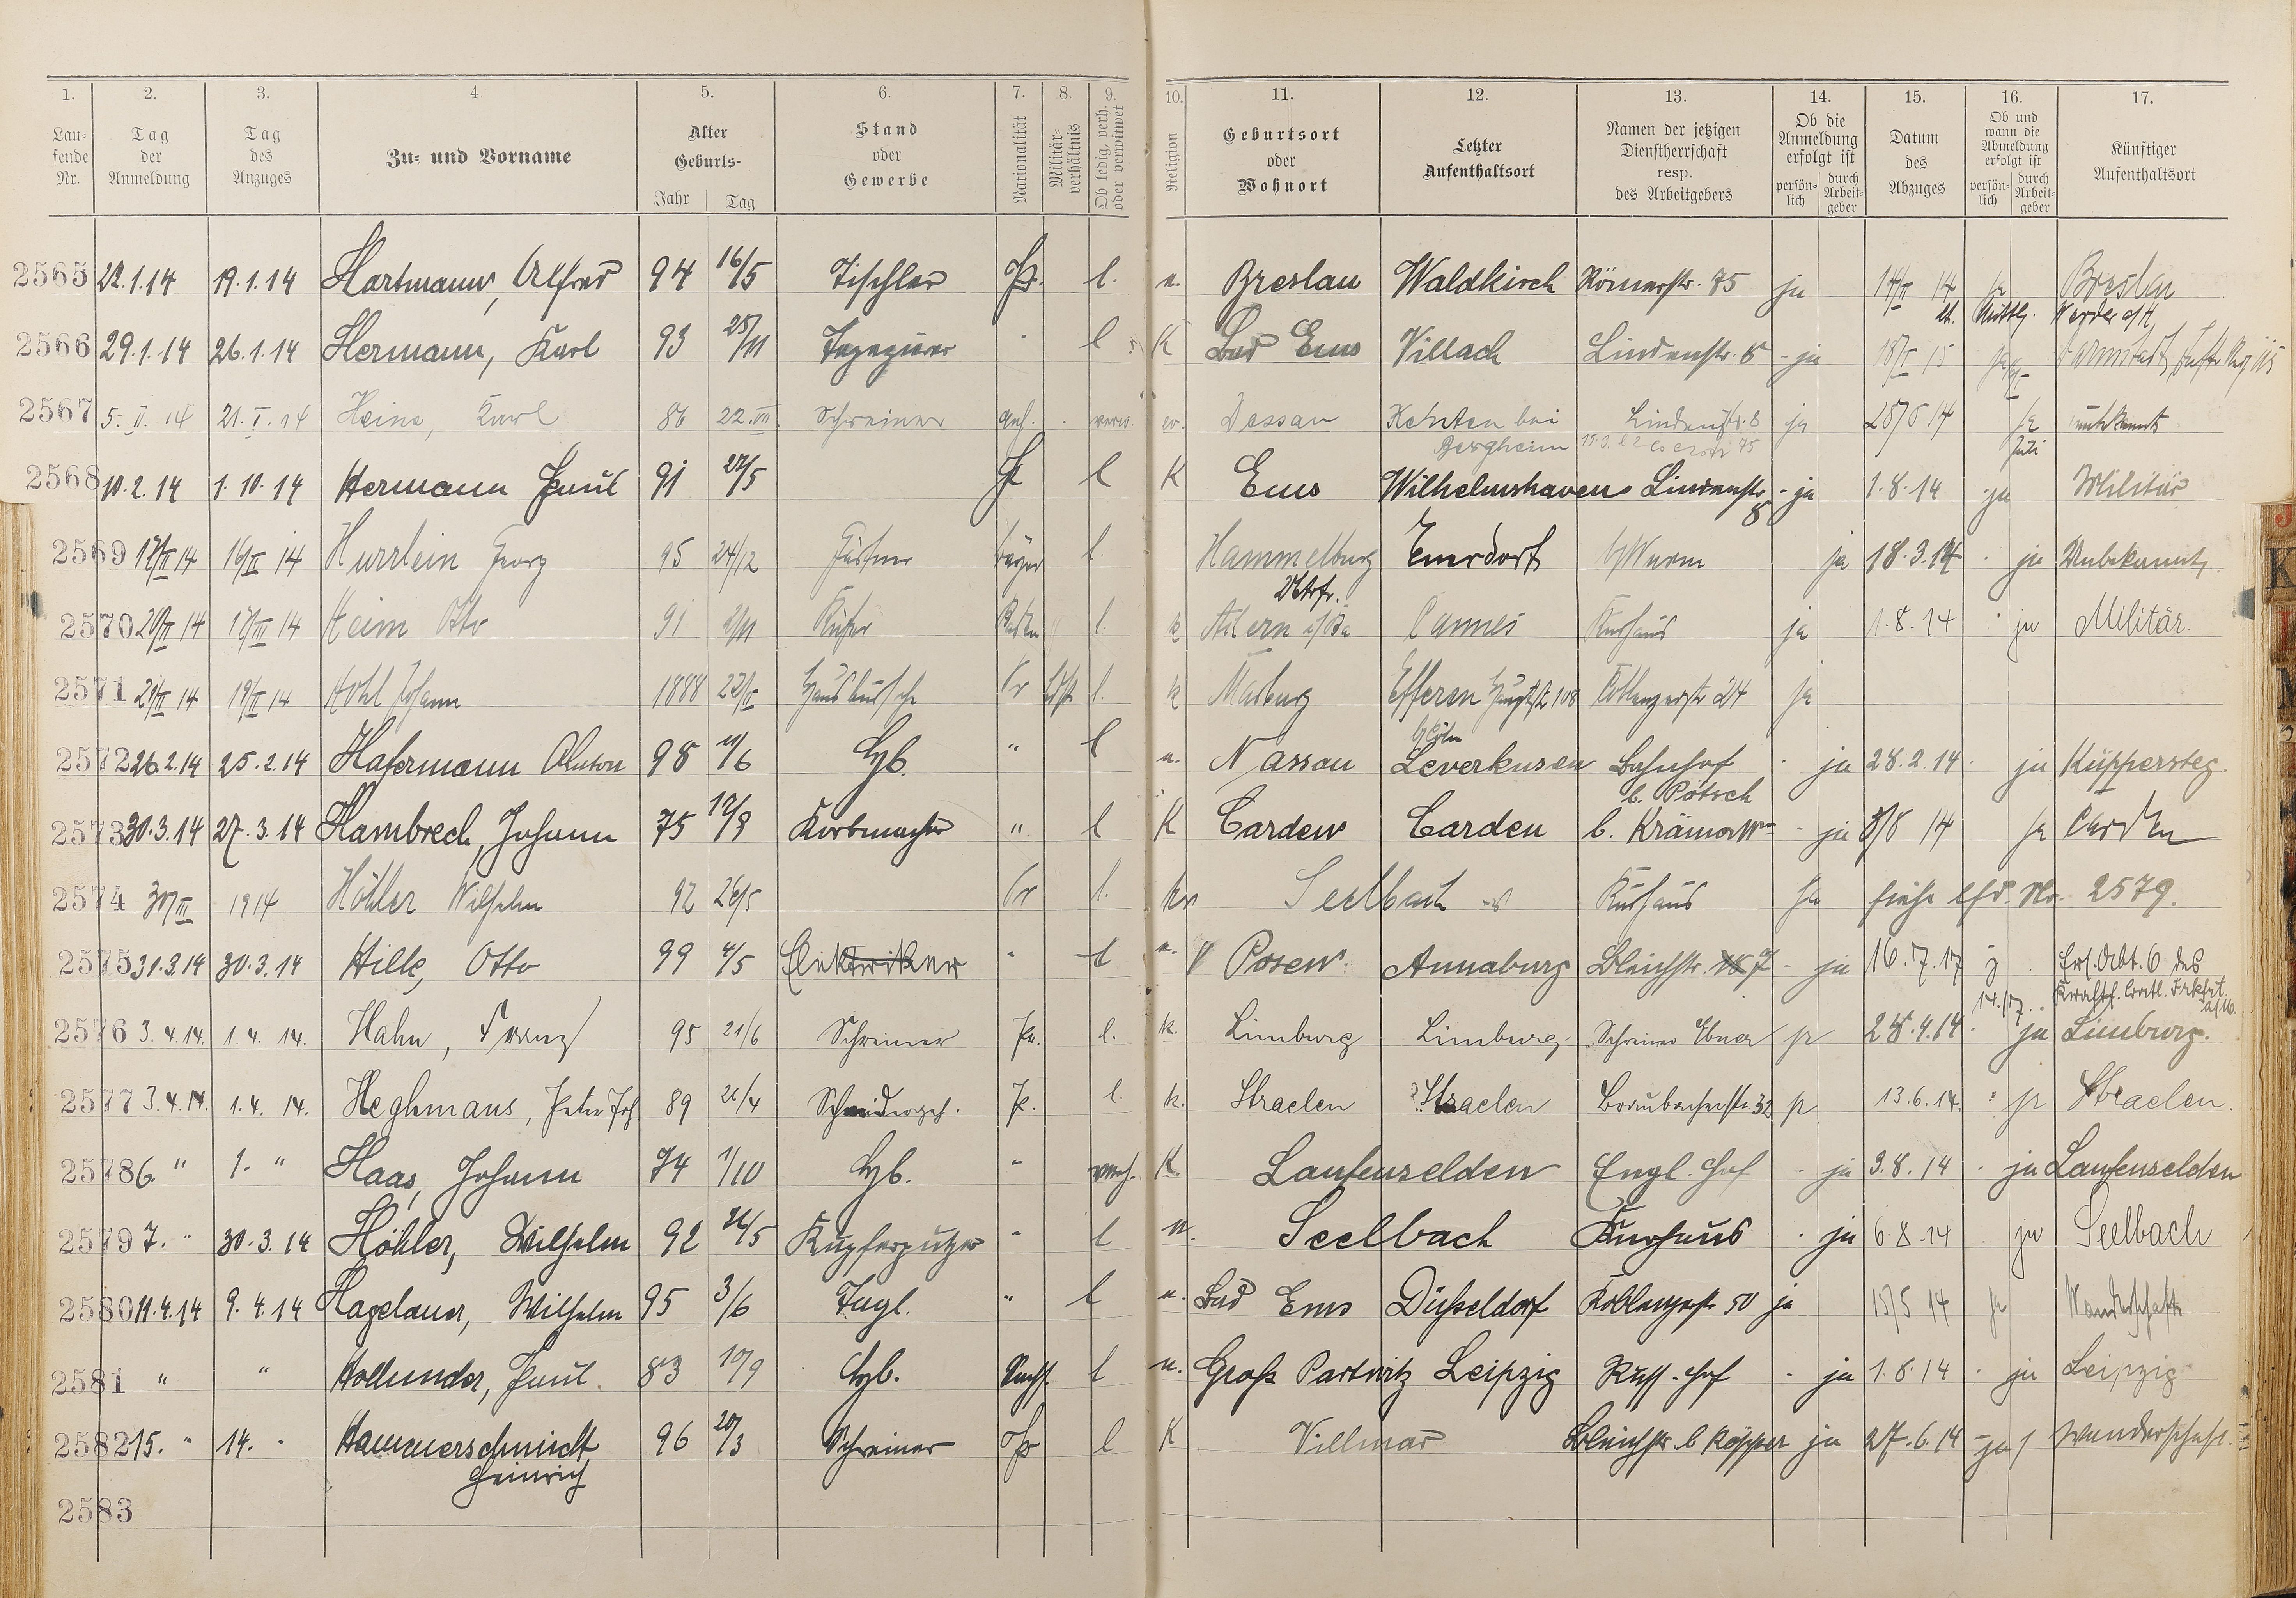 1. 2. 3. 4. 5. 6. 7. 8. 9. 10. 11. 12. 13. 14. 15. 16. 17.
Lau=
fende
Nr.
Tag
der
Anmeldung
Tag
des
Anzuges
Zu= und Vorname
Alter
Geburts-
Jahr Tag
Stand
oder
Gewerbe
Nationalität
Militär-
verhältnis
Ob ledig, verh.
oder verwitwet
Religion
Geburtsort
oder
Wohnort
Letzter
Aufenthaltsort
Namen der jetzigen
Dienstherrschaft
resp.
des Arbeitgebers
Ob die
Anmeldung
erfolgt ist
persön-
lich
durch
Arbeit-
geber
Datum
des
Abzuges
Ob und
wann die
Abmeldung
erfolgt ist
persön-
lich
durch
Arbeit-
geber
Künftiger
Aufenthaltsort
2565 22.1.14 19.1.14 Hartmann, Alfred 94 16/5 Tischler Pr. l. e. Breslau Waldkirch Römerstr. 75 ja 14/II 14 ja Breslau
Werder a/H
2566 29.1.14 26.1.14 Hermann, Karl 93 25/11 Tapezierer " l K Bad Ems Villach Lindenstr. 8 - ja 18/I 15 ja Darmstadt, Inftr Reg 115
2567 5. II. 14 21. I. 14 Heine, Karl 86 22. VII. Schreiner anh. verw. ev. Dessau Kehten bei Lindenstr. 8 ja 28/5 14 ja unbekannt
Bergheim
2568 10.2.14 1.10.14 Hermann Paul 91 27/5 Pr l K Ems Wilhelmshaven Lindenstr. 8 - ja 1.8.14 ja Militär
2569 17/II 14 16/II 14 Hurrlein Georg 95 24/12 Gärtner Bayer l. Hammelburg
Utrfr. Euerdorf b/Wurm ja 18.3.14 - ja Unbekannt
2570 20/II 14 17/III 14 Heim Otto 91 2/11 Küfer Baden l. k Achern i/Ba Cannes Kurhaus ja 1.8.14 " ja Militär
2571 21/II 14 19/II 14 Hohl Johann 1888 22/II Hausbursche Pr l. k Marburg Efferen Hauptstr 108 Coblenzerstr 24 ja
b/Cöln
2572 26.2.14 25.2.14 Hafermann Anton 98 11/6 Hb. " l e. Nassau Leverkusen Bahnhof
b. Pötsch - ja 28.2.14 - ja Küppersteg.
2573 30.3.14 27.3.14 Hambrech, Johann 75 12/8 Korbmacher " l K Carden Carden b. Krämer Ww - ja 3/8 14 ja Carden
2574 30/III 1914 Höhler Wilhelm 92 26/5 Pr l. ev Seelbach Kurhaus ja siehe lfd. No. 2579.
2575 31.3.14 30.3.14 Hille, Otto 99 4/5 Elektriker " l e. Posen Annaburg Bleichstr. 7 - ja 16.7.17 j Ers. Abt. 6 des
Kraftf. Batl. Frkfrt.
a/M.
14./7.
2576 3.4.14. 1.4.14. Hahn, Franz 95 21/6 Schreiner Pr. l. k. Limburg Limburg Schreiner Ebner ja 28.4.14 - ja Limburg.
2577 3.4.14. 1.4.14. Heghmans, Peter Joh. 89 21/4 Schneiderges. Pr. l. k. Straelen Straelen Braubacherstr. 32 ja 13.6.14. " ja Straelen.
2578 6. " 1. " Haas, Johann 74 1/10 Hb. " verh. K. Laufenselden Engl. Hof - ja 3.8.14 - ja Laufenselden
2579 7. " 30.3.14 Höhler, Wilhelm 92 26/5 Kupferputzer " l e. Seelbach Kurhaus - ja 6.8.14 - ja Seelbach
2580 11.4.14 9.4.14 Hagelauer, Wilhelm 95 3/6 Tagl. " l e. Bad Ems Düsseldorf Koblenzerstr. 50 ja 15/5 14 ja Wanderschaft
2581 " " Hollunder, Paul. 83 10/9 Hb. Sachs. l e. Groß Partwitz Leipzig Russ. Hof - ja 1.8.14 - ja Leipzig
2582 15. " 14. " Hammerschmidt 96 20/3 Schreiner Pr l K Villmar Bleichstr. b Köpper ja 27.6.14 - ja Wanderschaft.
Heinrich
2583